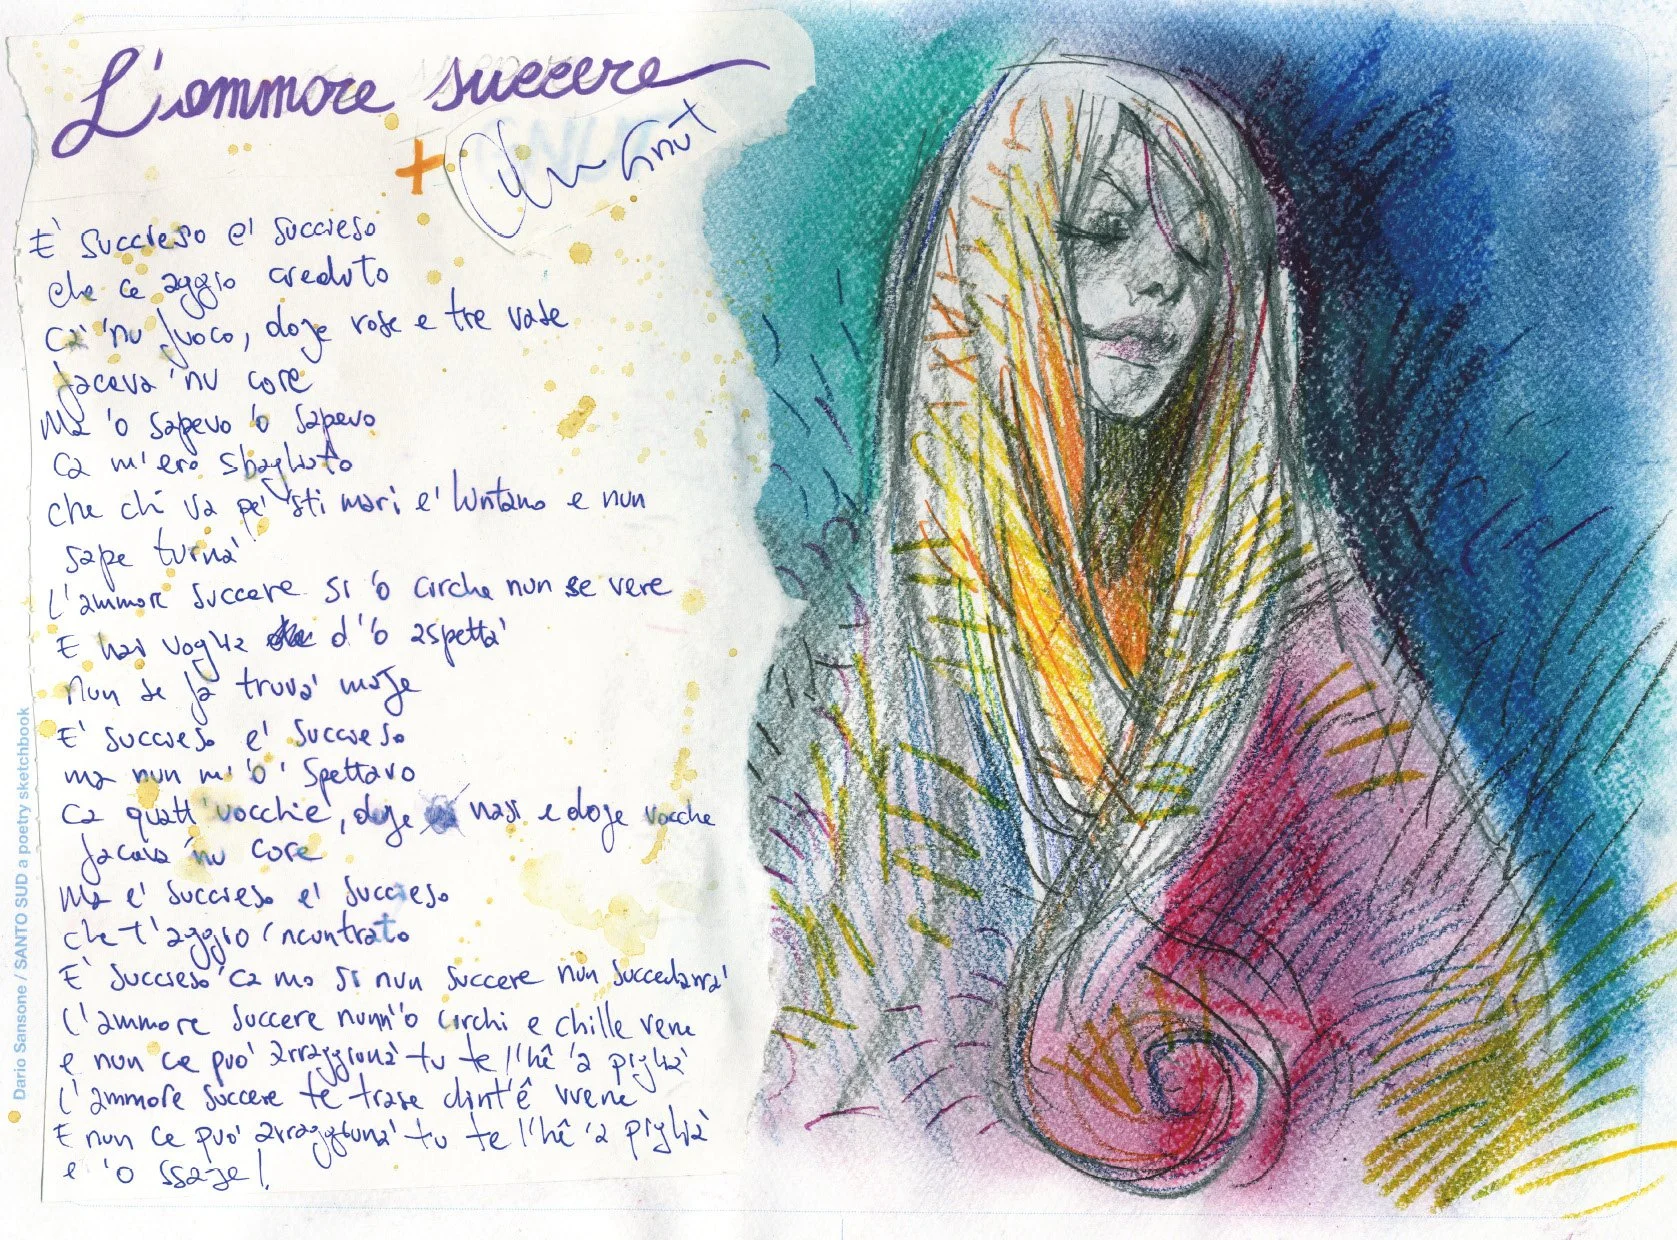 L'ammore succere
+
È succieso e' succieso
che ce aggio creduto
ca 'nu fuoco, doje rose e tre vase
faceva 'nu core
Ma 'o sapevo 'o sapevo
ca m'ero sbagliato
che chi va pe' 'sti mari e' luntano e nun
sape turnà
L'ammore succere si 'o cirche nun se vere
E hai voglia d''o aspettà
nun se fa truvà maje
E' succieso e' succieso
ma nun m''o' spettavo
ca quatt'uocchie', doje nasi e doje vocche
faceva 'nu core
Ma e' succieso e' succieso
che t'aggio 'ncuntrato
E' succieso ca mo si nun succere nun succedarrà
L'ammore succere nunn'o circhi e chille vene
e nun ce può arraggiunà tu te l'hê 'a piglià
L'ammore succere te trase dint'ê vvene
E nun ce può arraggiunà tu te l'hê 'a piglià
e 'o ssaje!
Dario Sansone / SANTO SUD a poetry sketchbook